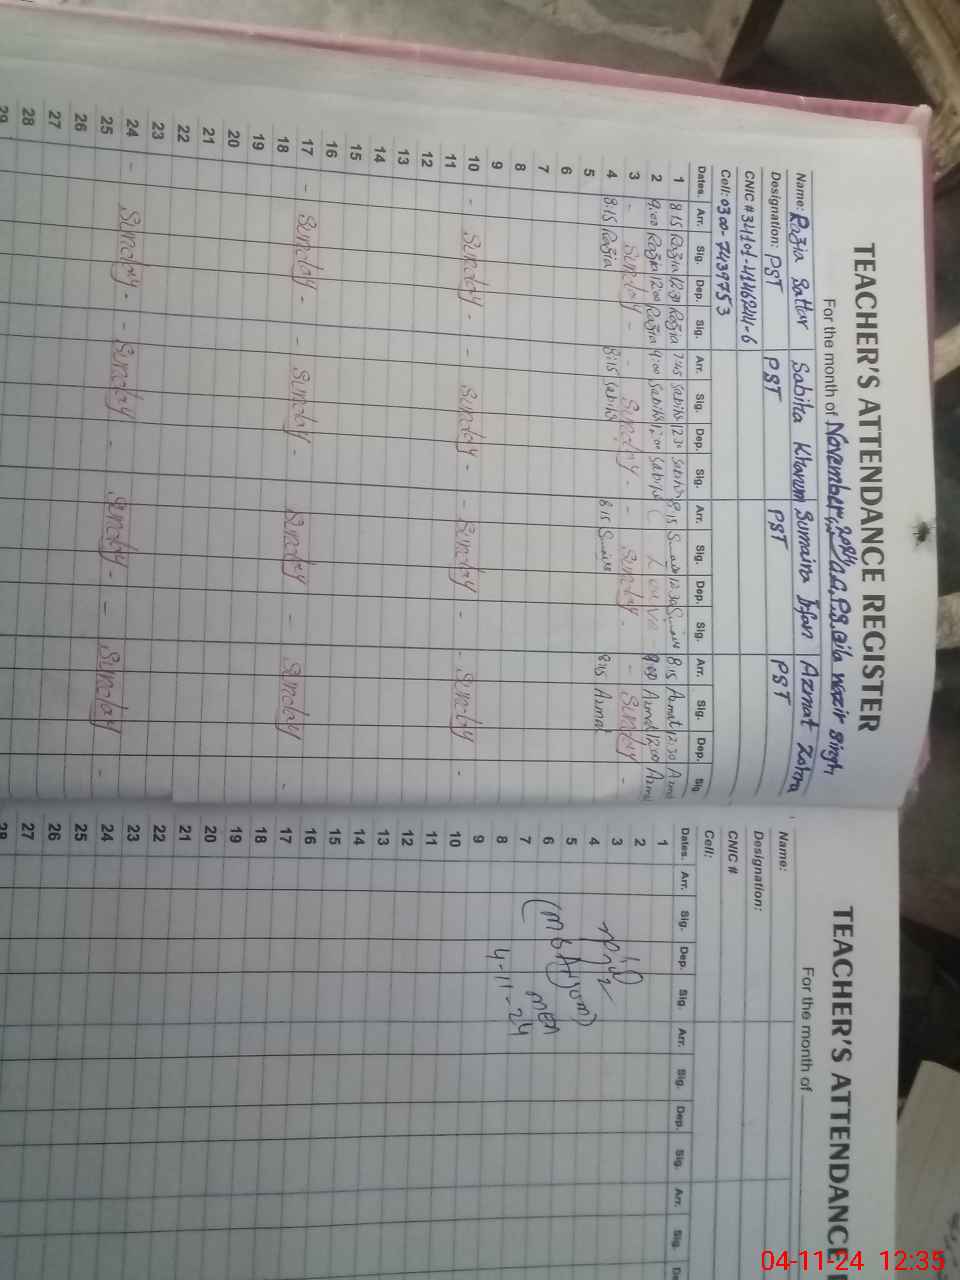 TEACHER'S ATTENDANCE REGISTER
For the month of November, 2024, Qila Wazir Singh
Name: Razia Sattar Sabika Khanum Sumaira Irfan Azmat Zahra
Designation: PST PST PST PST
CNIC #
Cell: 0300-7439753
Dates. Arr. Sig. Dep. Sig. Arr. Sig. Dep. Sig. Arr. Sig. Dep. Sig. Arr. Sig. Dep. Sig.
1 8:15 Razia 12:30 Razia 7:45 Sabika 12:30 Sabika 8:15 Sumaira 12:30 Sumaira 8:15 Azmat 12:30 Azmat
2 9:00 Razia 12:00 Razia 9:00 Sabika 12:00 Sabika Leave 9:00 Azmat 12:00 Azmat
3 - Sunday - - Sunday - - Sunday - - Sunday -
4 8:15 Razia 8:15 Sabika 8:15 Sumaira 8:15 Azmat
5
6
7
8
9
10 - Sunday - - Sunday - - Sunday - - Sunday -
11
12
13
14
15
16
17 - Sunday - - Sunday - Sunday - Sunday -
18
19
20
21
22
23
24 - Sunday - - Sunday - Sunday - - Sunday -
25
26
27
28
29
TEACHER'S ATTENDANCE
For the month of
Name:
Designation:
CNIC #
Cell:
Dates. Arr. Sig. Dep. Sig. Arr. Sig. Dep. Sig. Arr. Sig.
1
2
3
4
5
6
7
8
9
10
11
12
13
14
15
16
17
18
19
20
21
22
23
24
25
26
27
28
MEA
4-11-24
04-11-24 12:35